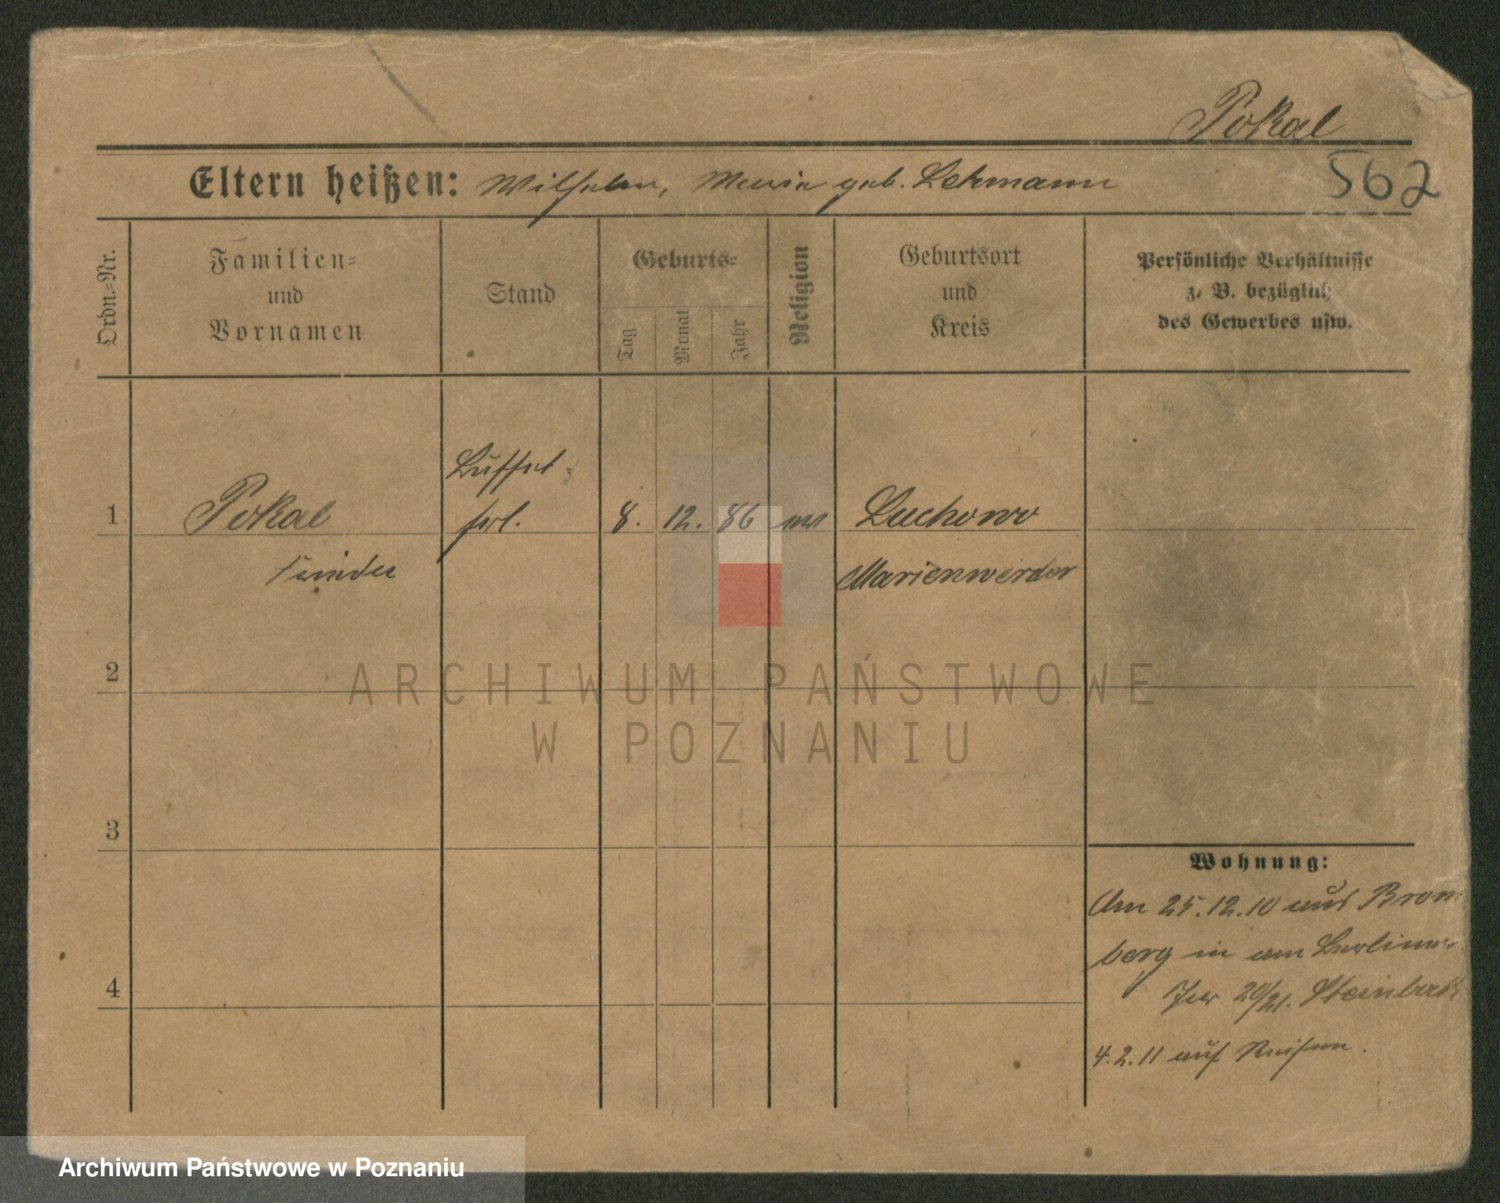 Pokal
562
Eltern heißen: Wilhelm, Maria geb. Lehmann
Ordn.-Nr.
Familien-
und
Vornamen
Stand
Geburts-
Tag
Monat
Jahr
Religion
Geburtsort
und
Kreis
Persönliche Verhältnisse
z. B. bezüglich
des Gewerbes usw.
Büffet-
1 Pokal frl. 8. 12. 86 ev Luchowo
Marienwerder
2
3
4
Wohnung:
Am 25.12.10 aus Brom
berg in am Berliner
Tor 20/21. Steinbach
4.2.11 auf Reisen.
ARCHIWUM PAŃSTWOWE
W POZNANIU
Archiwum Państwowe w Poznaniu